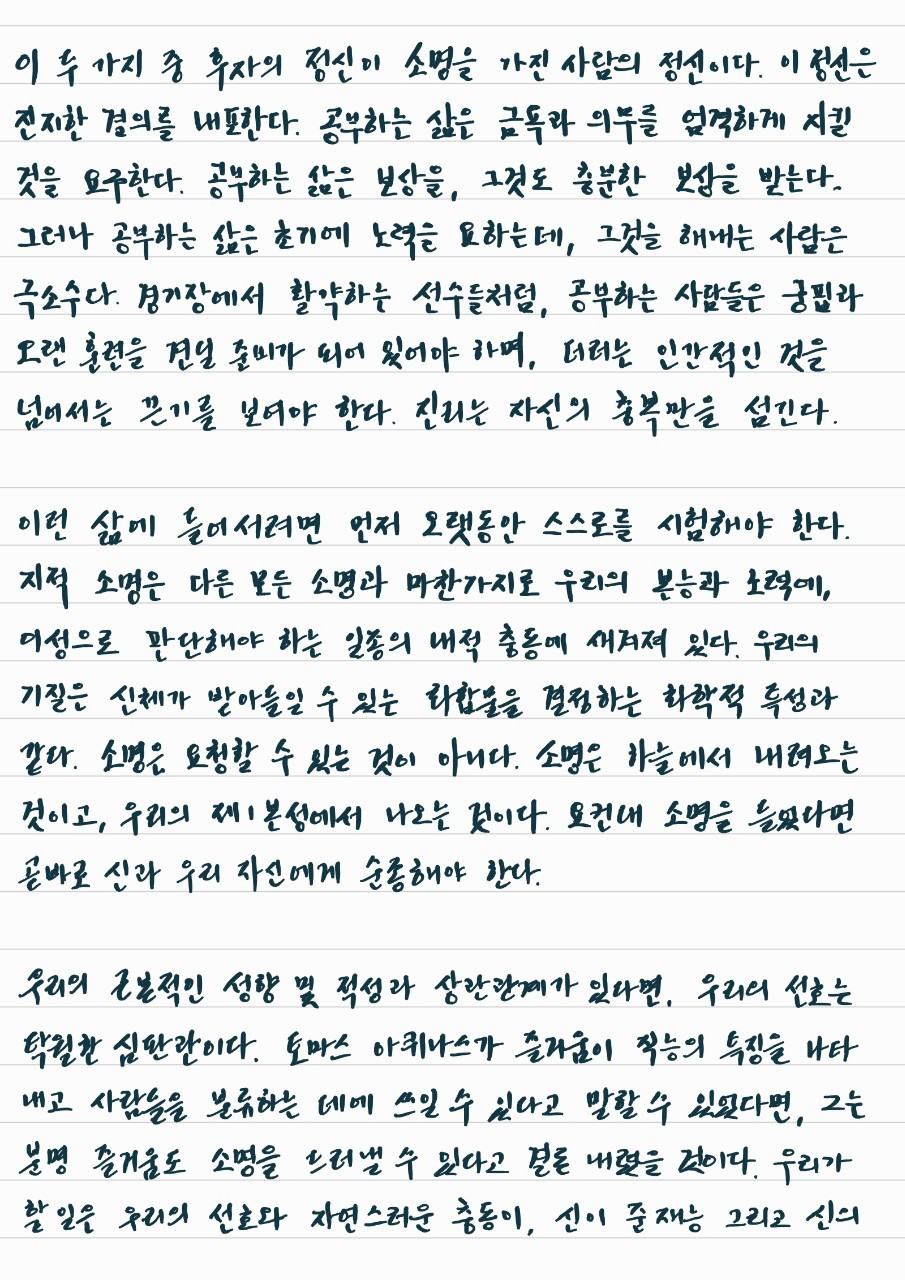 이 두 가지 중 후자의 정신이 소명을 가진 사람의 정신이다. 이 정신은
진지한 결의를 내포한다. 공부하는 삶은 금욕과 의무를 엄격하게 지킬
것을 요구한다. 공부하는 삶은 보상을, 그것도 충분한 보상을 받는다.
그러나 공부하는 삶은 초기에 노력을 요하는데, 그것을 해내는 사람은
극소수다. 경기장에서 활약하는 선수들처럼, 공부하는 사람들은 궁핍과
오랜 훈련을 견딜 준비가 되어 있어야 하며, 때로는 인간적인 것을
넘어서는 끈기를 보여야 한다. 진리는 자신의 충복만을 섬긴다.
이런 삶에 들어서려면 먼저 오랫동안 스스로를 시험해야 한다.
지적 소명은 다른 모든 소명과 마찬가지로 우리의 본능과 노력에,
이성으로 판단해야 하는 일종의 내적 충동에 새겨져 있다. 우리의
기질은 신체가 받아들일 수 있는 화합물을 결정하는 화학적 특성과
같다. 소명은 요청할 수 있는 것이 아니다. 소명은 하늘에서 내려오는
것이고, 우리의 제1본성에서 나오는 것이다. 요컨대 소명을 들었다면
곧바로 신과 우리 자신에게 순종해야 한다.
우리의 근본적인 성향 및 적성과 상관관계가 있다면, 우리의 선호는
탁월한 심판관이다. 토마스 아퀴나스가 즐거움이 직능의 특징을 나타
내고 사람들을 분류하는 데에 쓰일 수 있다고 말할 수 있었다면, 그는
분명 즐거움도 소명을 드러낼 수 있다고 결론 내렸을 것이다. 우리가
할 일은 우리의 선호와 자연스러운 충동이, 신이 준 재능 그리고 신의